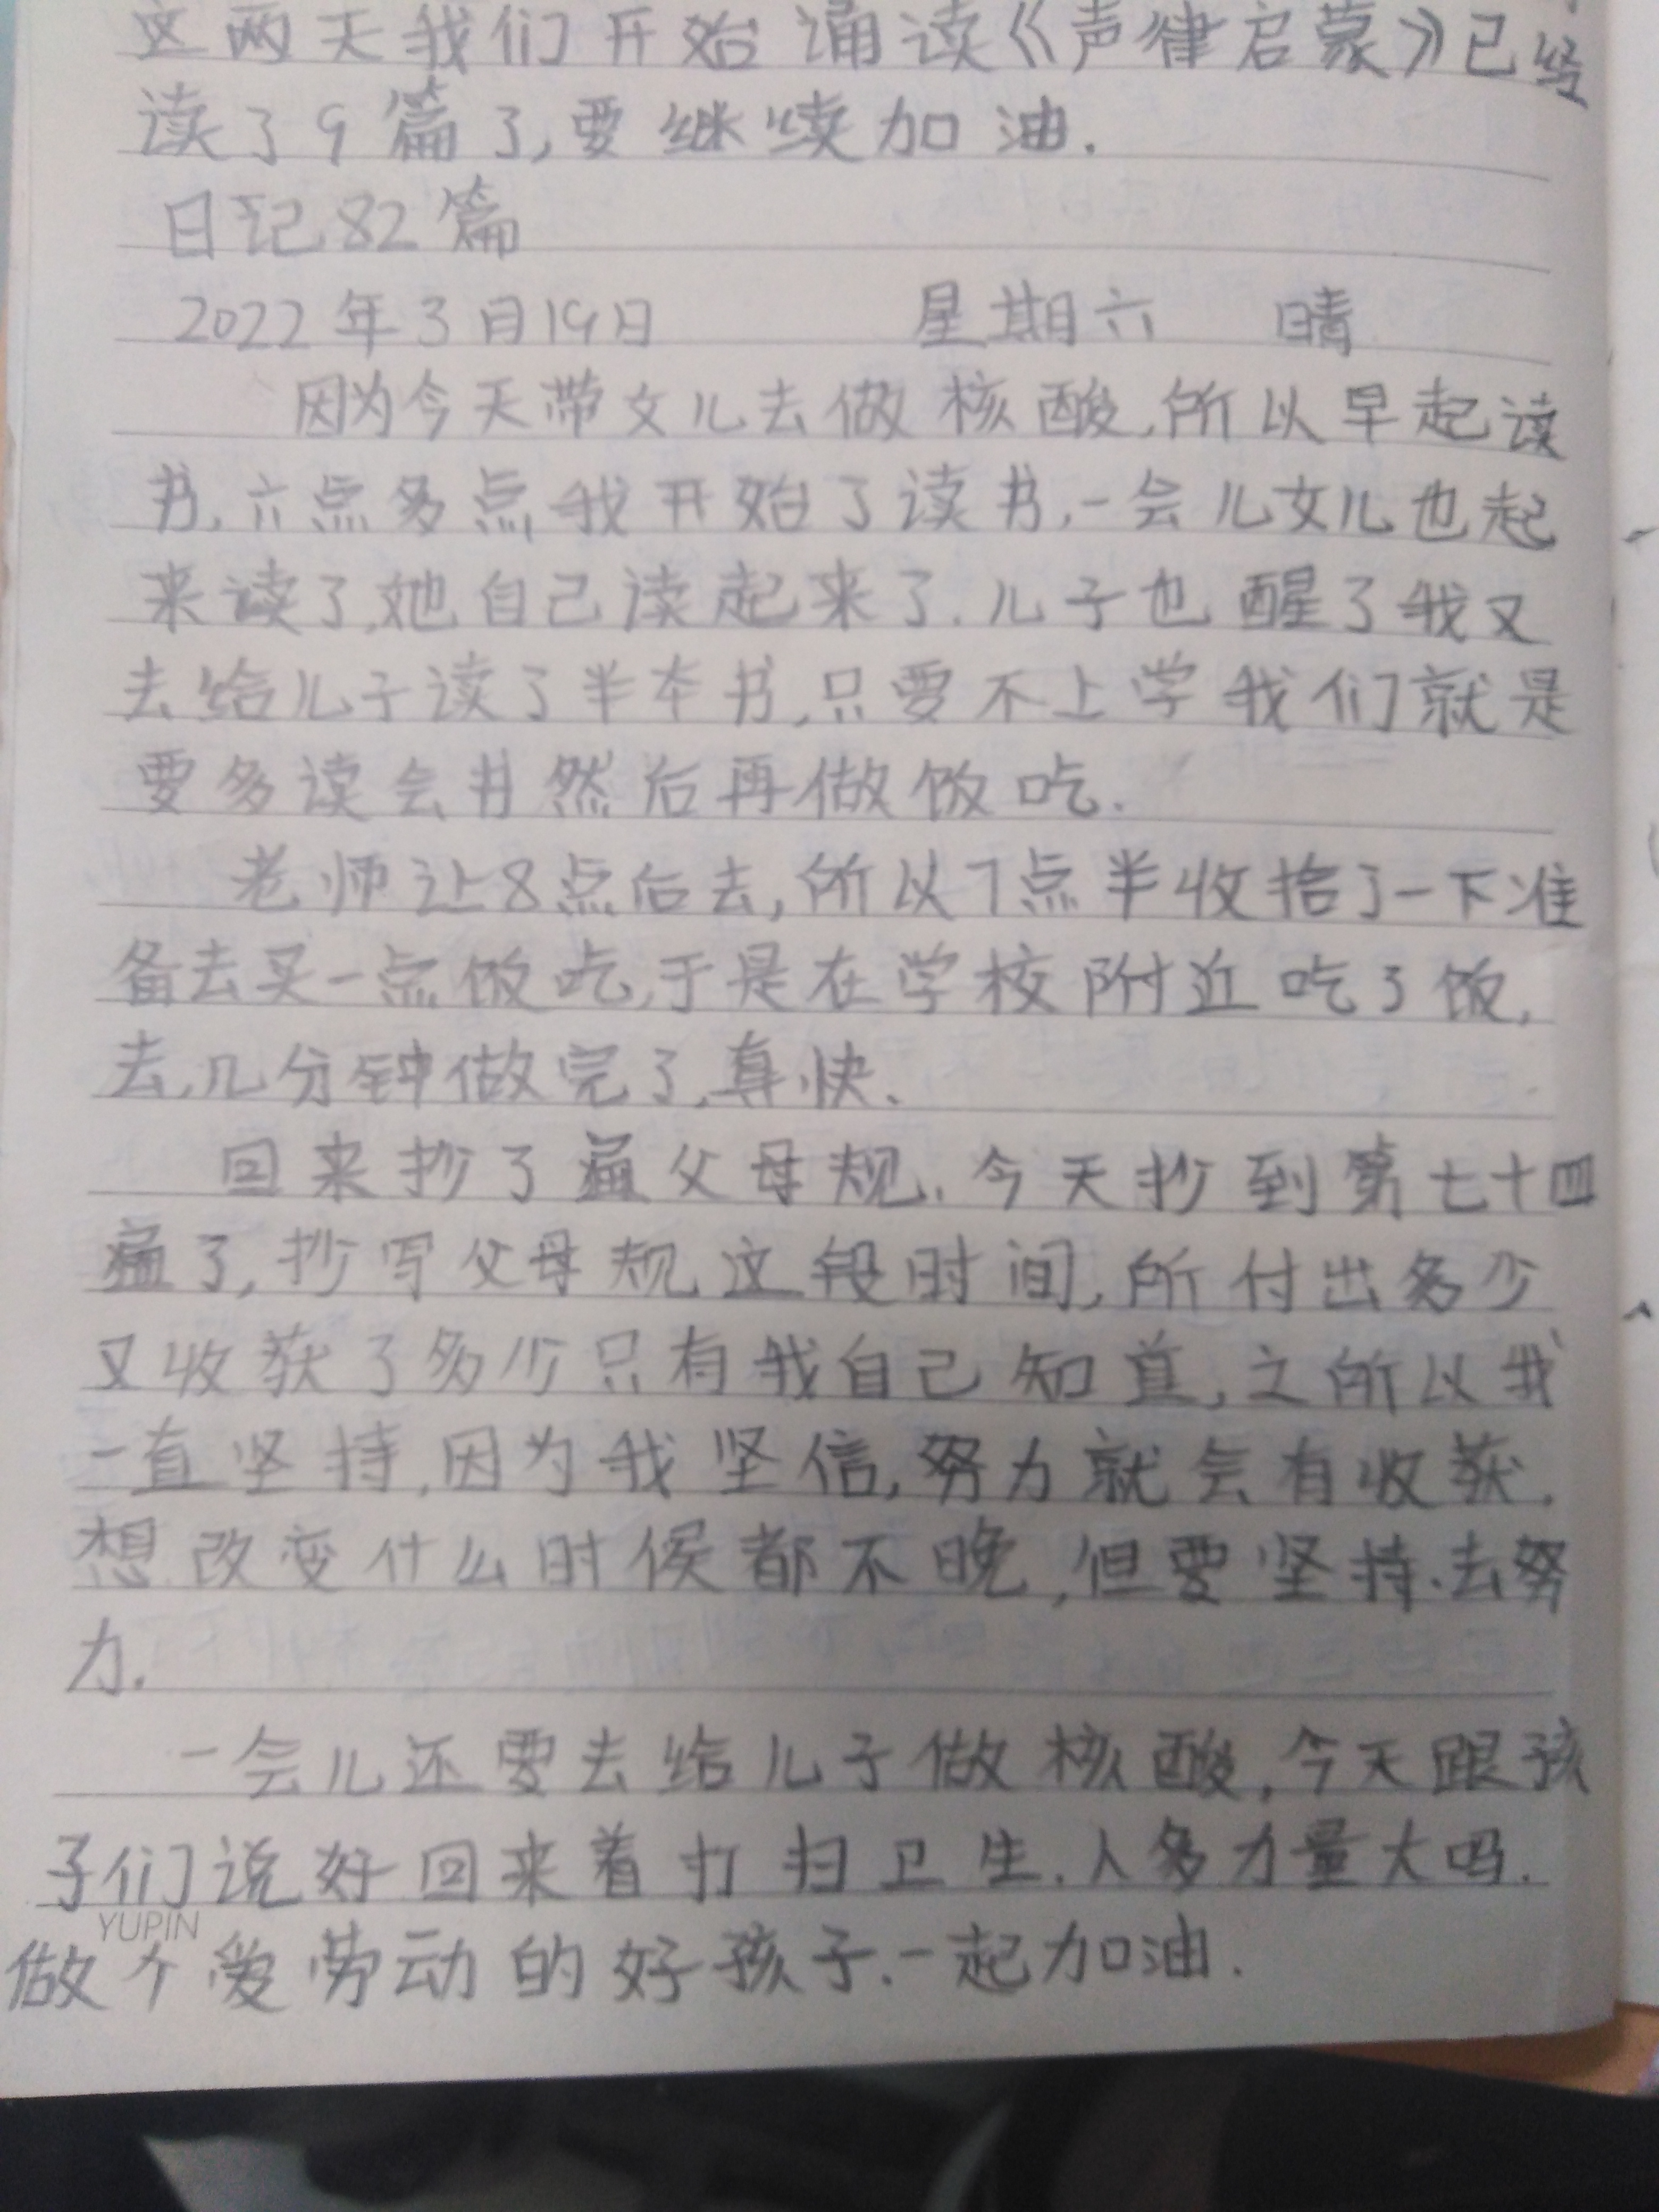 这两天我们开始诵读《声律启蒙》已经
读了9篇了,要继续加油.
日记82篇
2022年3月19日 星期六 晴
因为今天带女儿去做核酸,所以早起读
书,六点多点我开始了读书,一会儿女儿也起
来读了,她自己读起来了.儿子也醒了我又
去给儿子读了半本书,只要不上学我们就是
要多读会书然后再做饭吃.
老师让8点后去,所以7点半收拾了一下准
备去买一点饭吃,于是在学校附近吃了饭,
去,几分钟做完了,真快、
回来抄了遍父母规.今天抄到第七十四
遍了,抄写父母规这段时间,所付出多少
又收获了多少只有我自己知道,之所以我
一直坚持,因为我坚信,努力就会有收获.
想改变什么时候都不晚,但要坚持.去努
力.
一会儿还要去给儿子做核酸,今天跟孩
子们说好回来着打扫卫生.人多力量大吗.
YUPIN
做个爱劳动的好孩子.一起加油.